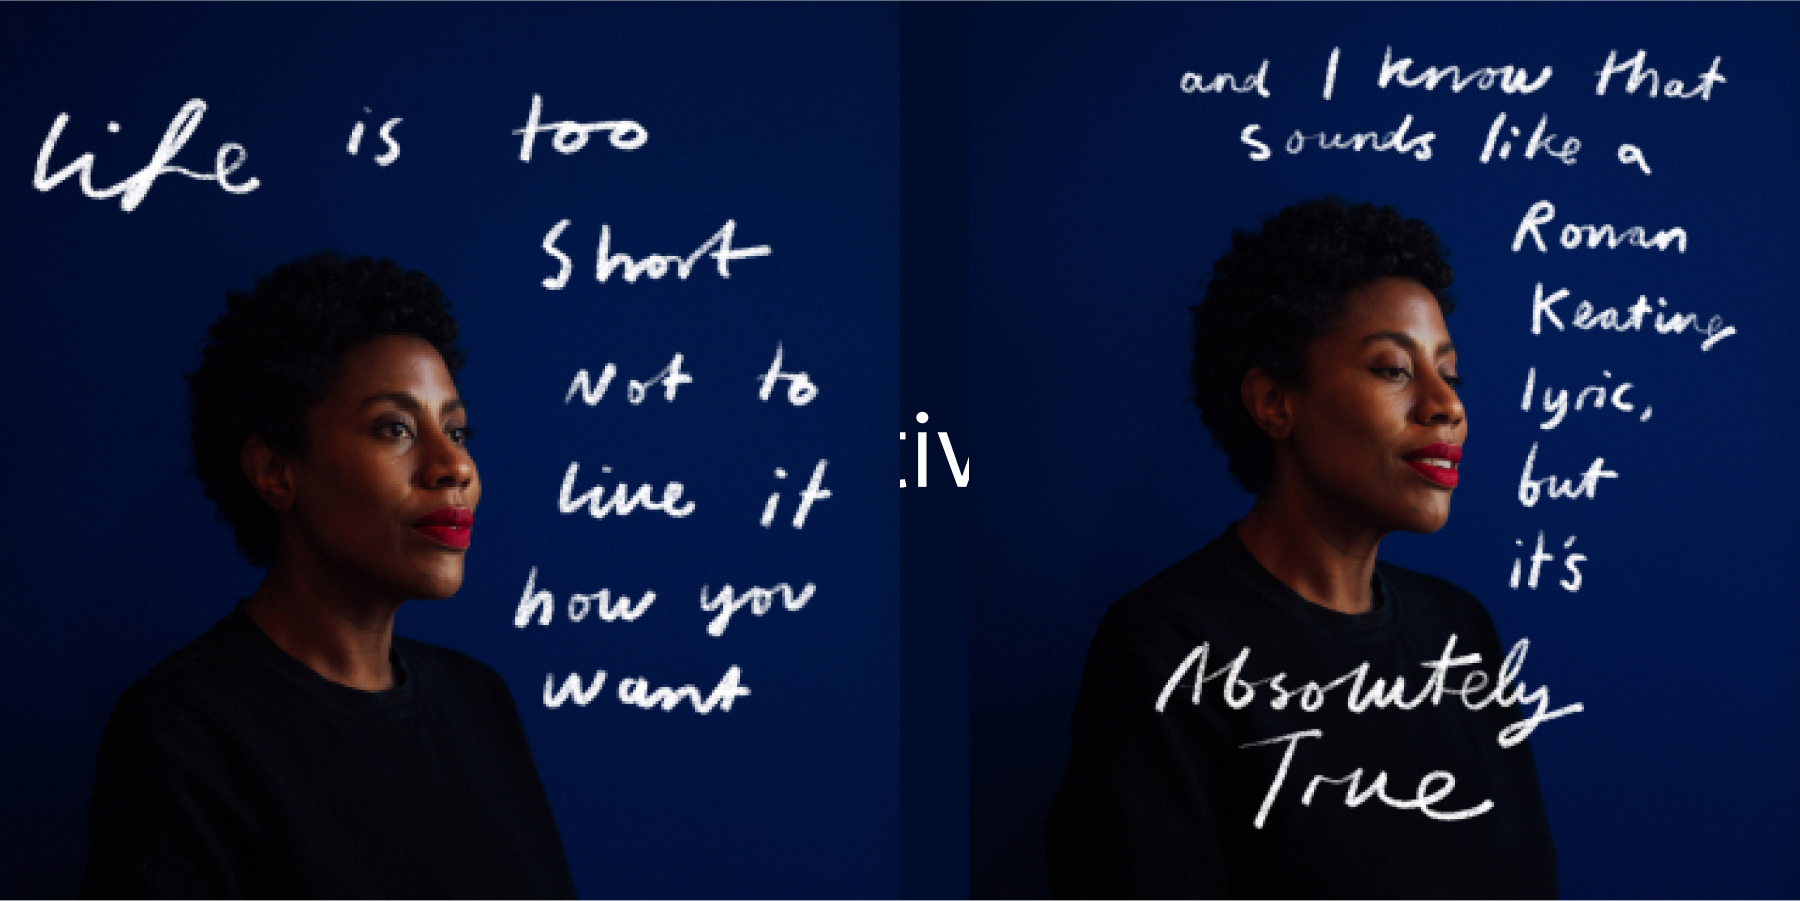 life is too
Short
Not to
live it
how you
want
tiv
and I know that
sounds like a
Ronan
Keating
lyric,
but
it's
Absolutely
True